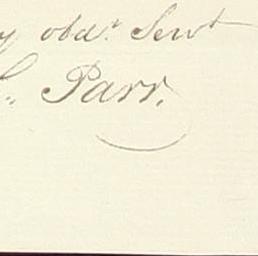 y obdt. Servt
S. Parr.